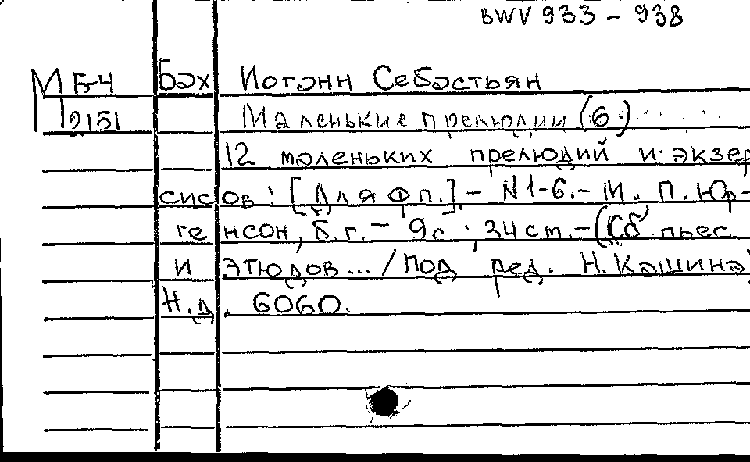 BWV 933 - 938
М Б-4 Бах Иоганн Себастьян
П 2151 Маленькие прелюдии (6.)
12 маленьких прелюдий и экзер
сисов : [Для фп.]. - N 1-6. - М., П. Юр-
генсон, б.г. - 9с ; 34 cm. - (Сб пьес
и этюдов... / под ред. Н. Кашина)
Н.д. 6060.